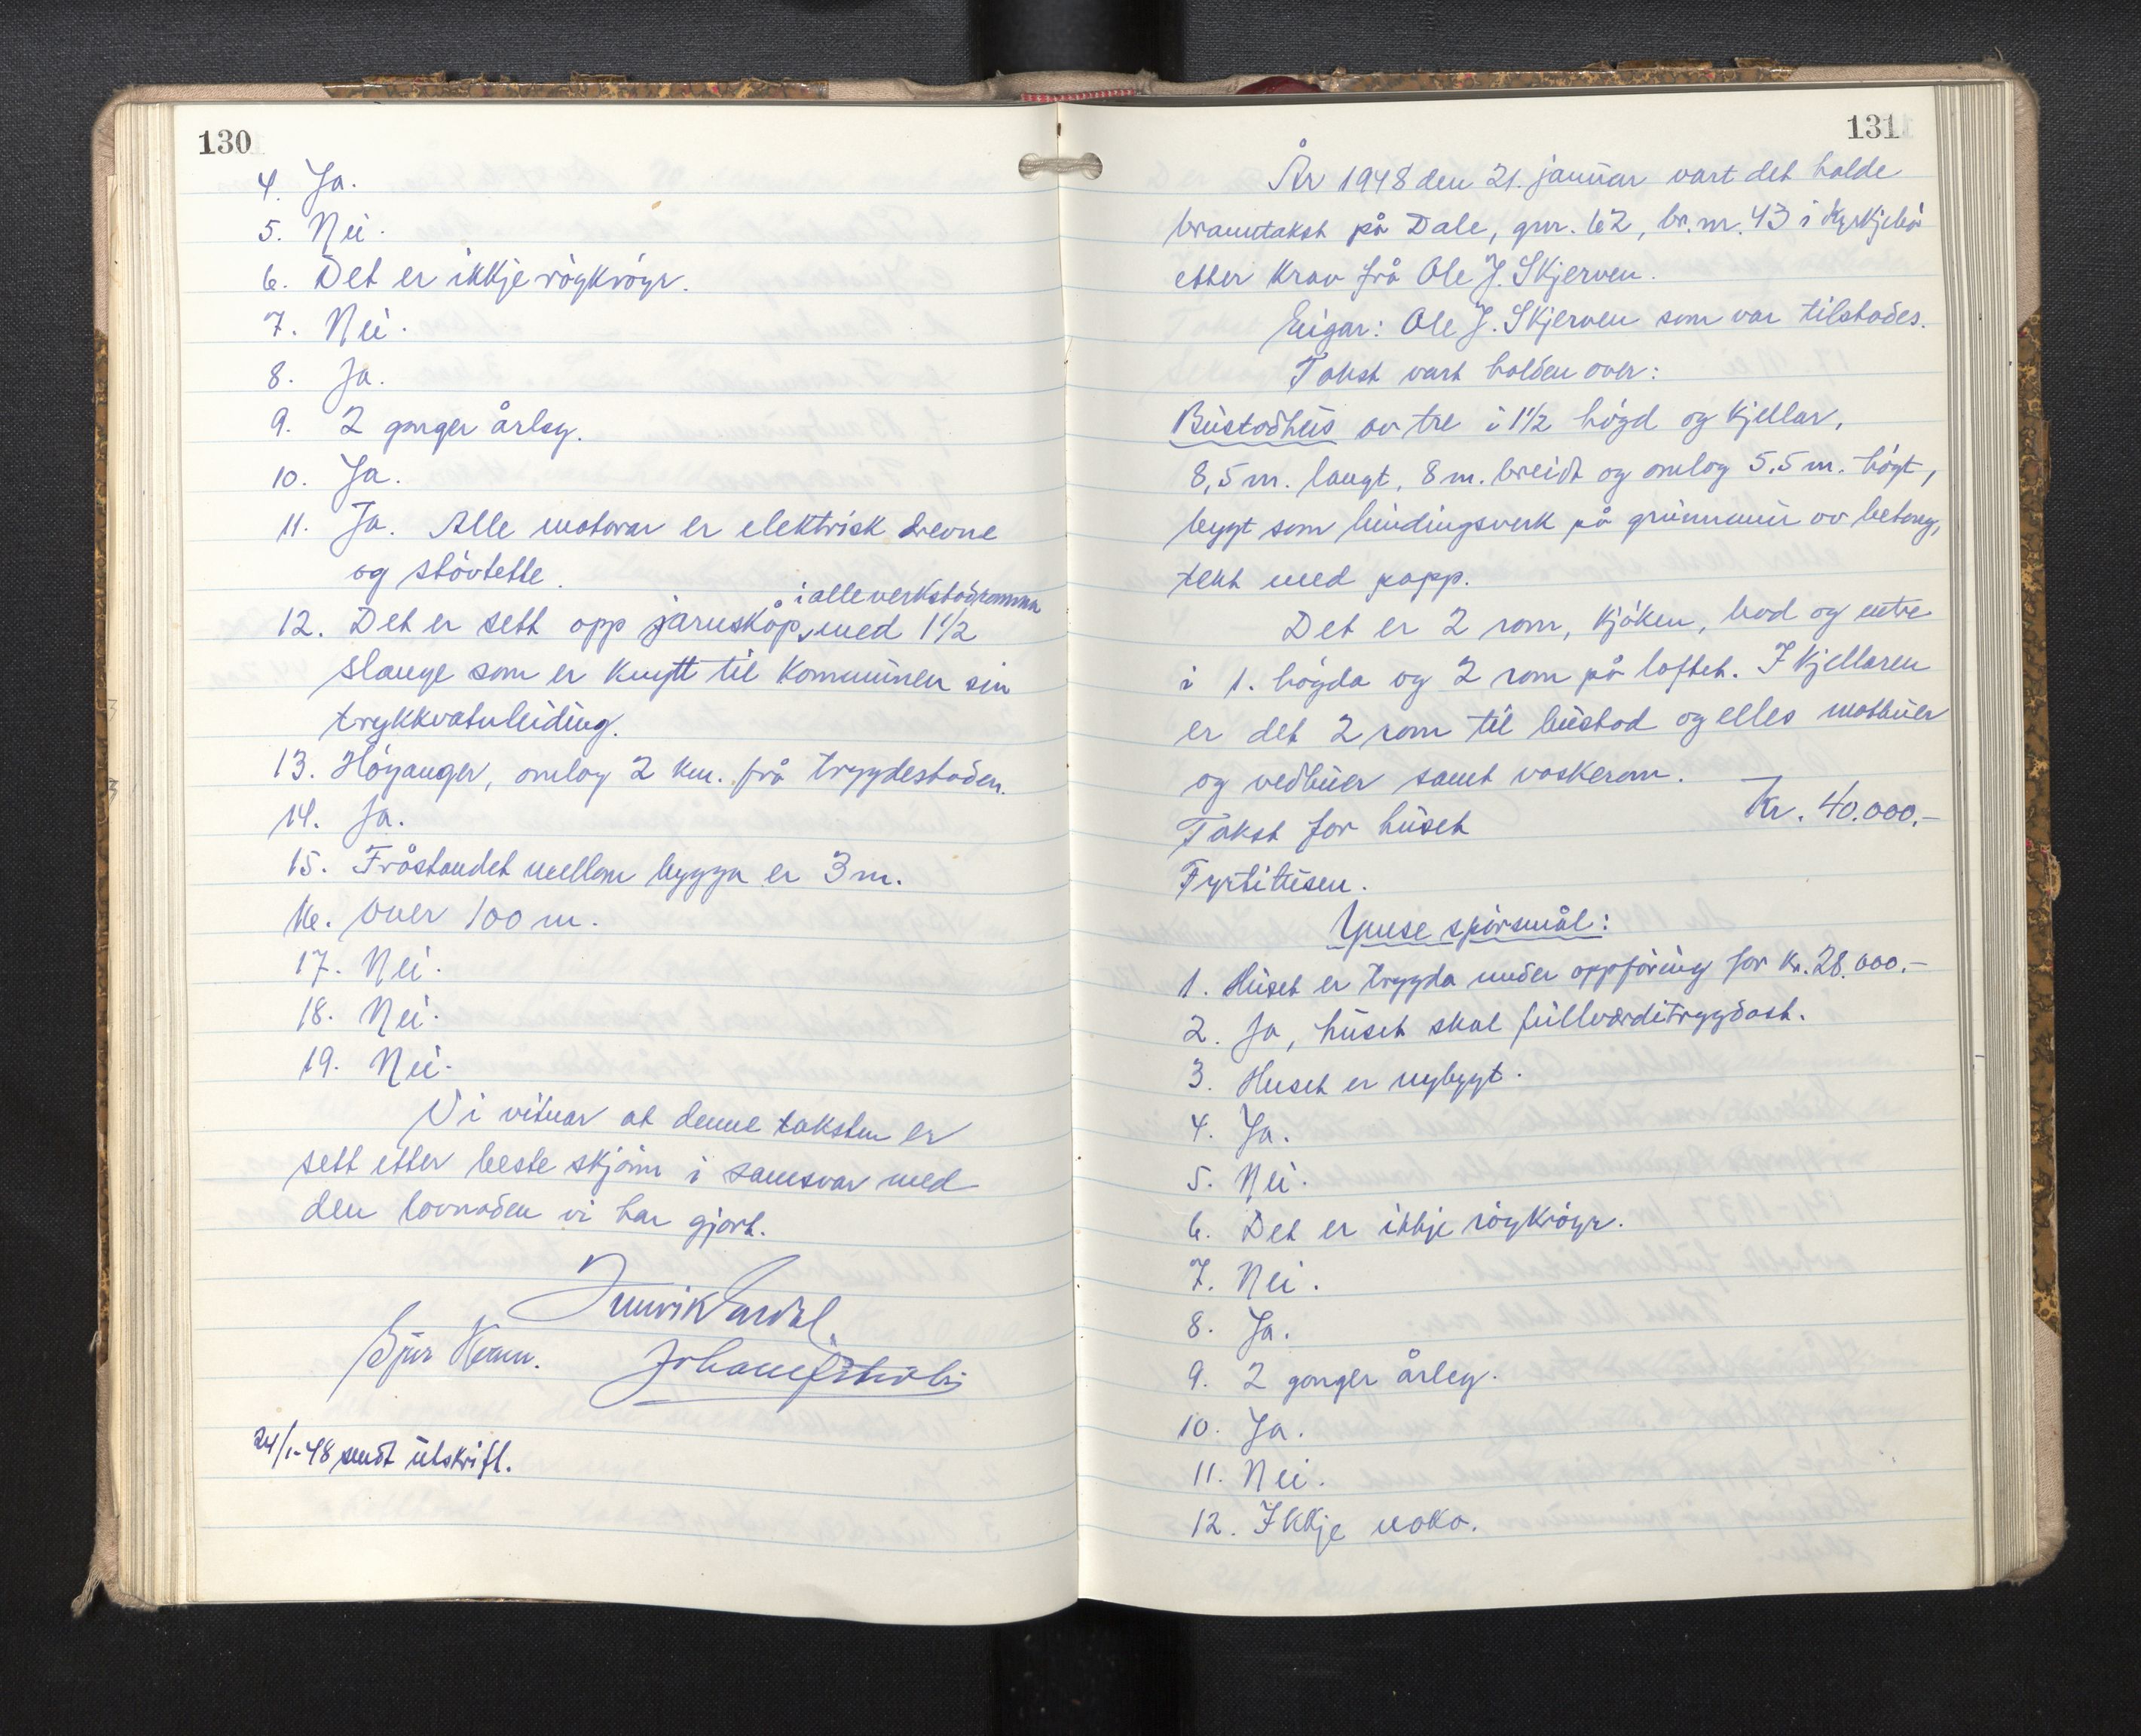 130
4. Ja.
5. Nei.
6. Det er ikkje röykröyr.
7. Nei.
8. Ja.
9. 2 gonger årleg.
10. Ja.
11. Ja. Alle motorar er elektrisk drevne
og stövtette.
i alle verkstadromma
12. Det er sett opp jarnskåp, med 1 1/2
slange som er knytt til kommunen sin
trykkvatnleiding.
13. Höyanger, omlag 2 km. frå trygdestaden.
14. Ja.
15. Fråstandet mellom bygga er 3 m.
16. Over 100 m.
17. Nei.
18. Nei.
19. Nei.
Vi vitnar at denne taksten er
sett etter beste skjönn i samsvar med
den lovnaden vi har gjort.
24/1-48 sendt utskrift.
131
År 1948 den 21. januar vart det halde
branntakst på Dale, gnr. 62, br.nr. 43 i Kyrkjebö
etter krav frå Ole J. Skjerven.
Eigar: Ole J. Skjerven som var tilstades.
Takst vart halden over:
Bustadhus av tre i 1 1/2 högd og kjellar,
8,5 m. langt, 8 m. breidt og omlag 5,5 m. högt,
bygt som bindingsverk på grunnmur av betong,
tekt med papp.
Det er 2 rom, kjöken, bod og entre
i 1. högda og 2 rom på loftet. I kjellaren
er det 2 rom til bustad og elles matbuer
og vedbuer samt vaskerom.
Takst for huset Kr. 40.000.-
Fyrtitusen.
Ymse spörsmål:
1. Huset er trygda under oppföring for kr. 28.000.-
2. Ja, huset skal fullverditrygdast.
3. Huset er nybygt.
4. Ja.
5. Nei.
6. Det er ikkje röykröyr.
7. Nei.
8. Ja.
9. 2 gonger årleg.
10. Ja.
11. Nei.
12. Ikkje noko.